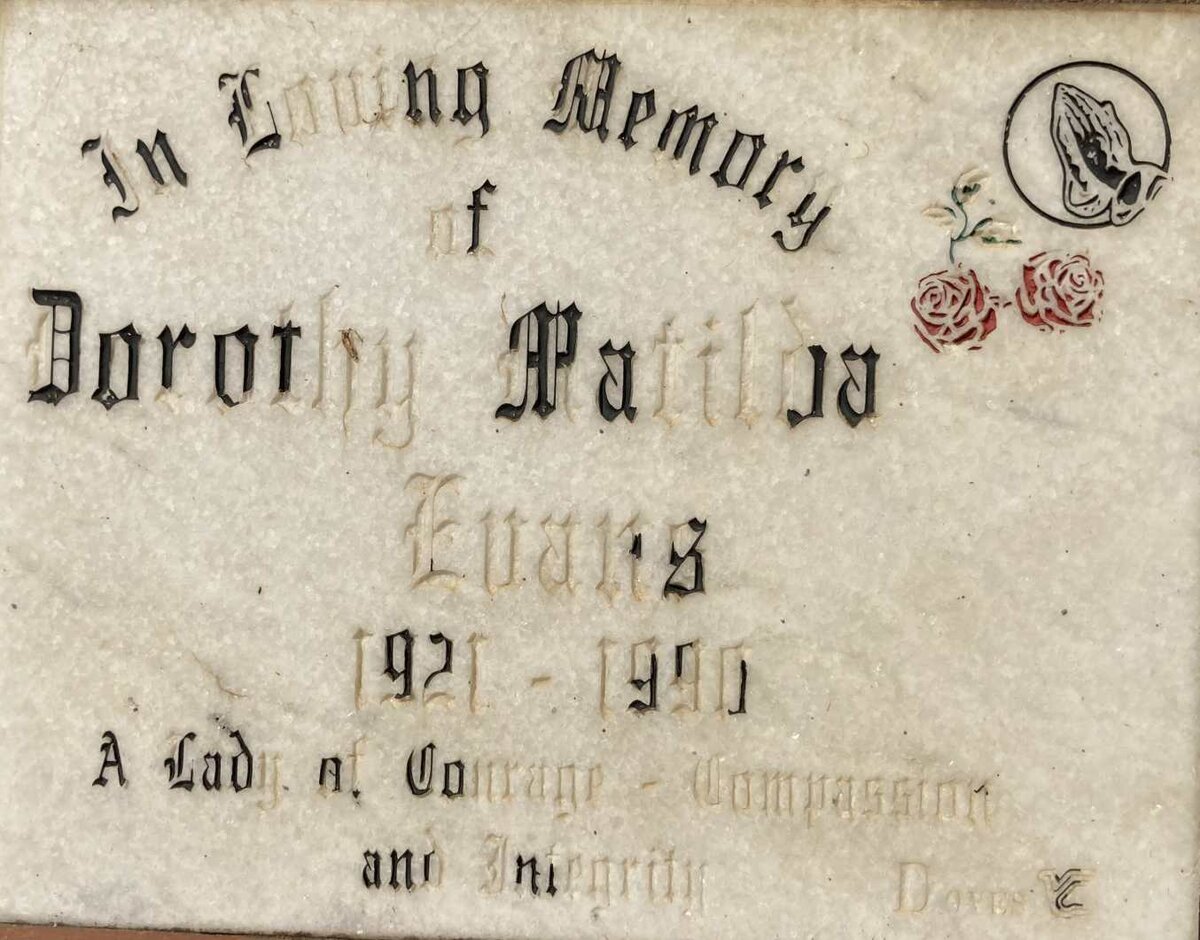 In Loving Memory
of
Dorothy Matilda
Evans
1921 - 1990
A Lady of Courage - Compassion
and Integrity
Doves